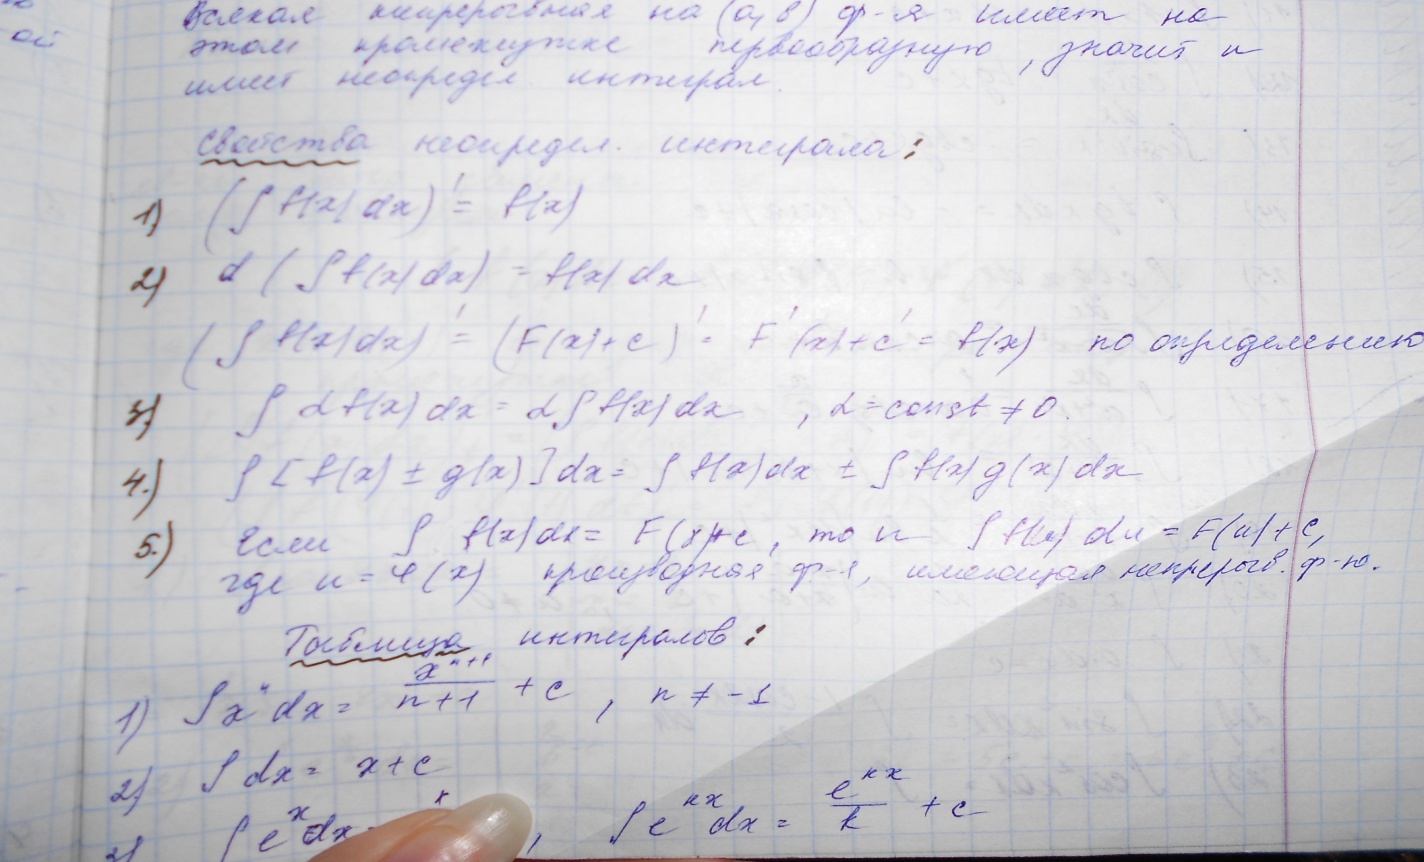 Всякая непрерывная на (a, b) ф-я имеет на
этом промежутке первообразную, значит и
имеет неопредел. интеграл.
Свойства неопредел. интеграла:
1) (∫ f(x) dx)' = f(x)
2) d (∫ f(x) dx) = f(x) dx
(∫ f(x) dx)' = (F(x) + c)' = F'(x) + c' = f(x) по определению
3) ∫ αf(x) dx = α∫ f(x) dx , α = const ≠ 0.
4.) ∫ [f(x) ± g(x)] dx = ∫ f(x) dx ± ∫ f(x) g(x) dx
5.) Если ∫ f(x) dx = F(x) + c, то и ∫ f(u) du = F(u) + c,
где u = φ(x) производная ф-я, имеющая непрерыв. ф-ю.
Таблица интегралов:
1) ∫ xⁿ dx = xⁿ⁺¹ / n+1 + c , n ≠ -1
2) ∫ dx = x + c
3) ∫ eˣ dx = , ∫ eᵏˣ dx = eᵏˣ / k + c